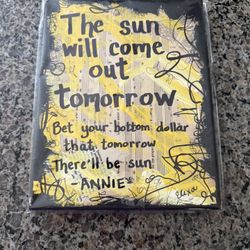 The sun
will come
out
tomorrow
Bet your bottom dollar
that tomorrow
There'll be sun
-ANNIE